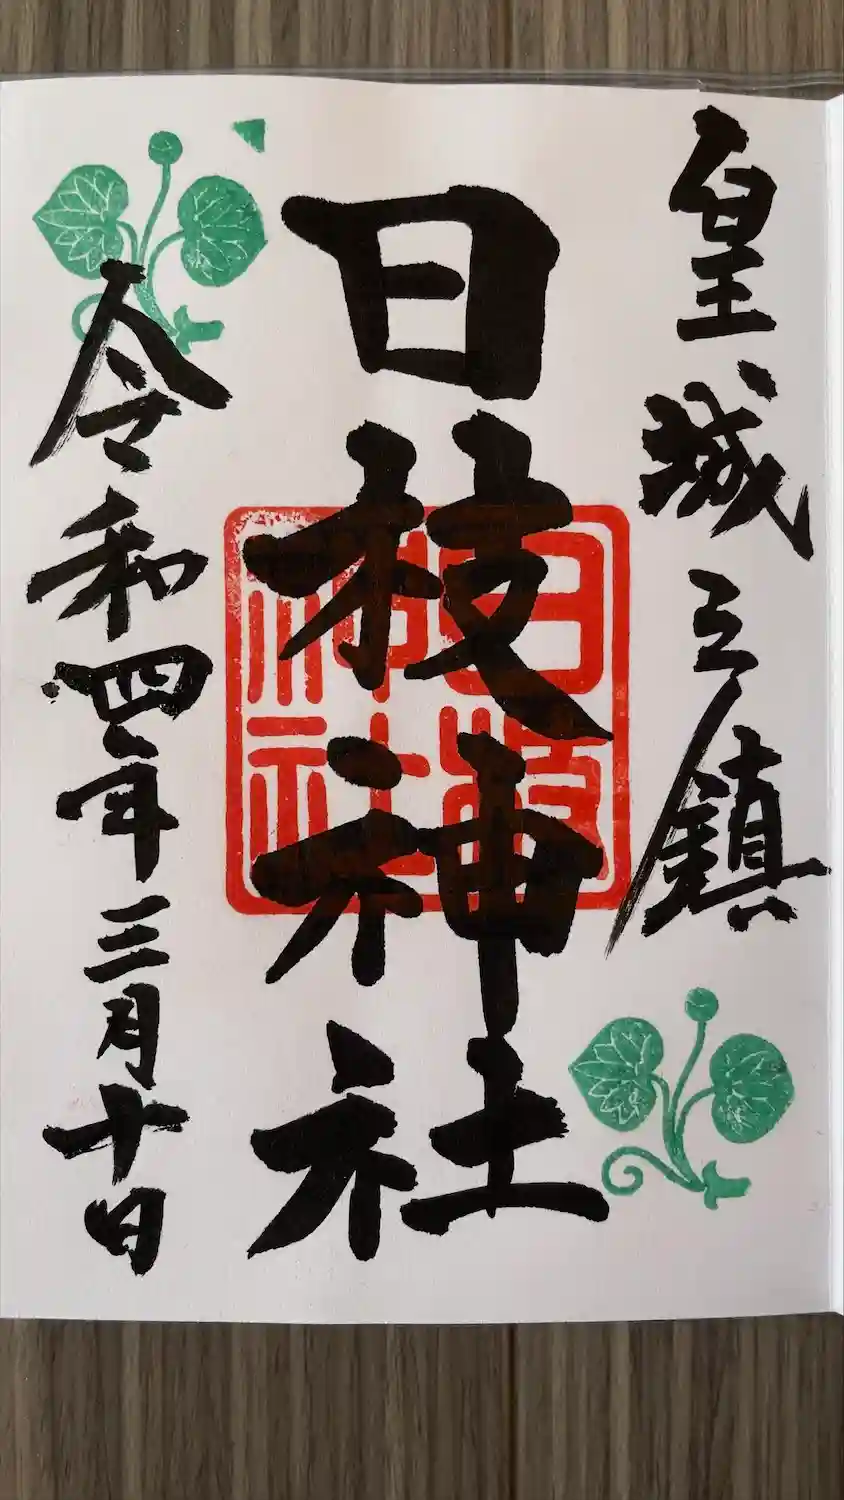 皇城之鎮
日枝神社
日枝神社
令和四年三月十日